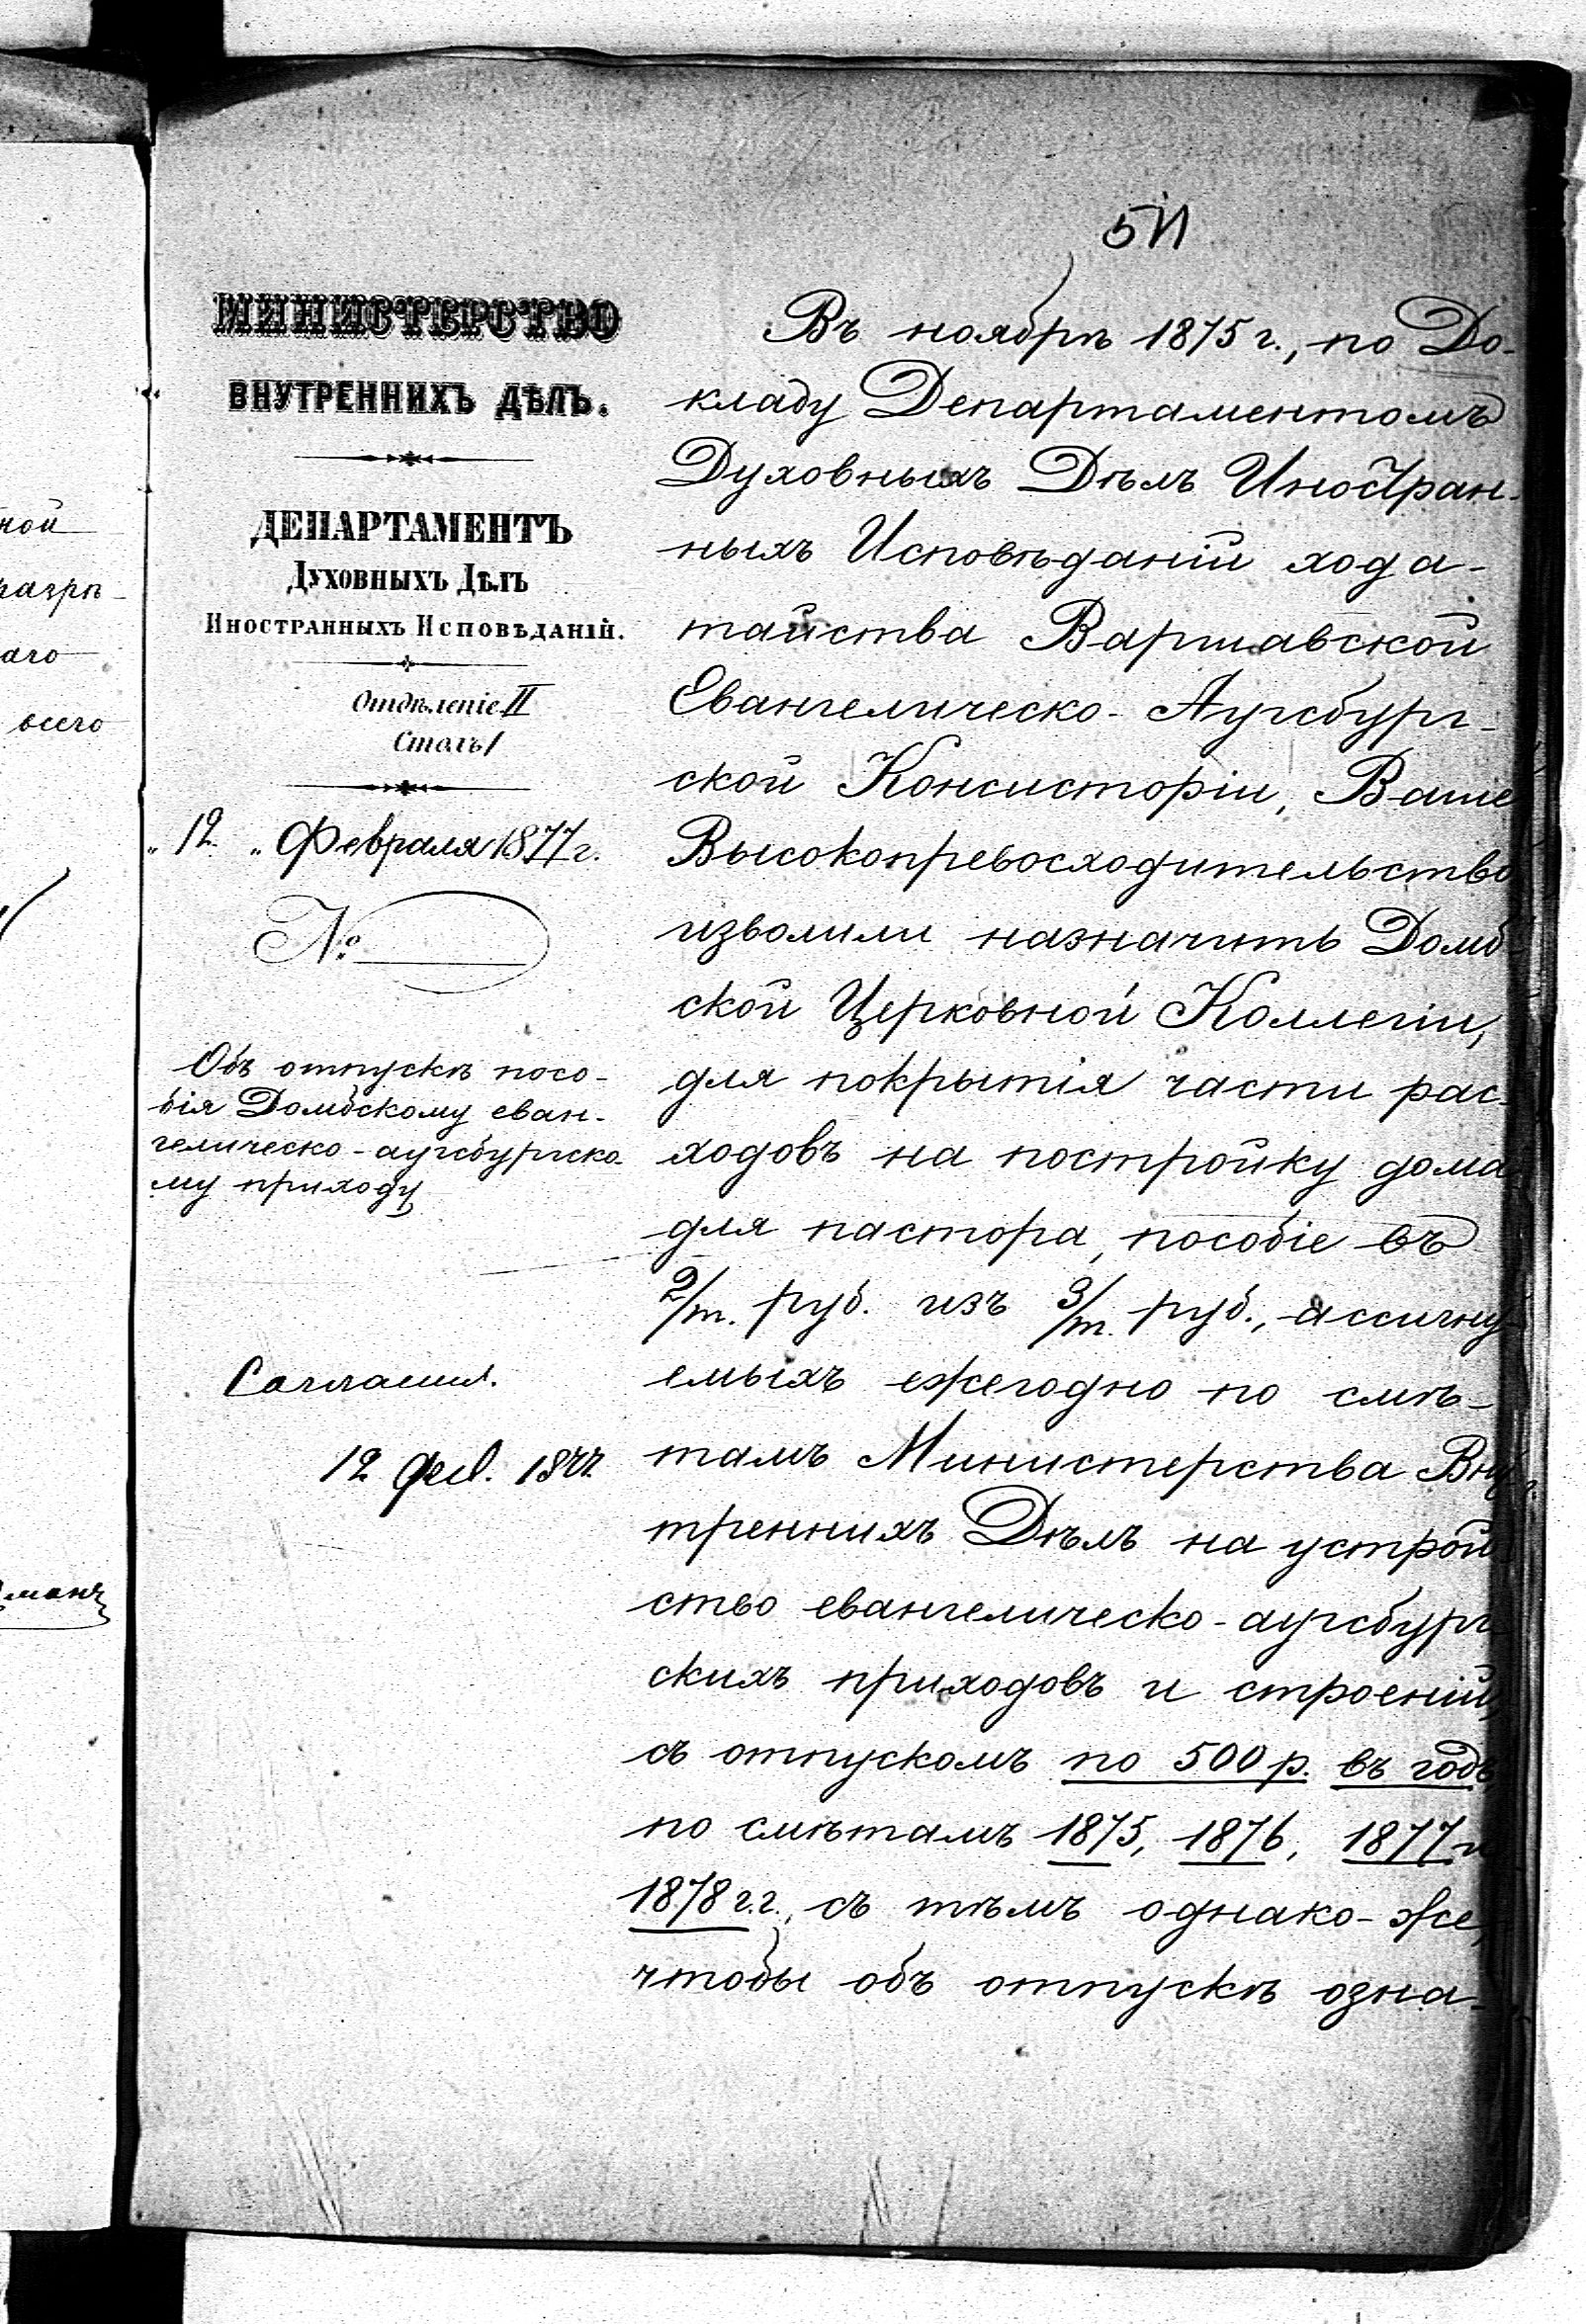 ной
разрѣ-
аго
всего
манъ
5
МИНИСТЕРСТВО
ВНУТРЕННИХЪ ДѢЛЪ.
ДЕПАРТАМЕНТЪ
Духовныхъ Дѣлъ
Иностранныхъ Исповѣданій.
Отдѣленіе II
Столъ I
„12„ Февраля 1877 г.
№
Объ отпускѣ посо-
бія Домбскому еван-
гелическо-аугсбургско-
му приходу
Согласенъ.
12 фев. 1877
Въ ноябрѣ 1875 г., по До-
кладу Департаментомъ
Духовныхъ Дѣлъ Иностран-
ныхъ Исповѣданій хода-
тайства Варшавской
Евангелическо-Аугсбург-
ской Консисторіи, Ваше
Высокопревосходительство
изволили назначить Домб
ской Церковной Коллегіи,
для покрытія части рас-
ходовъ на постройку дома
для пастора, пособіе въ
2/т. руб. изъ 3/т. руб., ассигну-
емыхъ ежегодно по смѣ-
тамъ Министерства Вну-
треннихъ Дѣлъ на устрой
ство евангелическо-аугсбург-
скихъ приходовъ и строеній,
съ отпускомъ по 500 р. въ годъ
по смѣтамъ 1875, 1876, 1877 и
1878 г.г., съ тѣмъ однако-же,
чтобы объ отпускѣ озна-